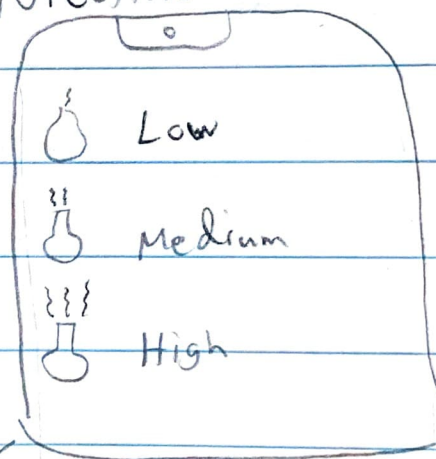 Low
Medium
High